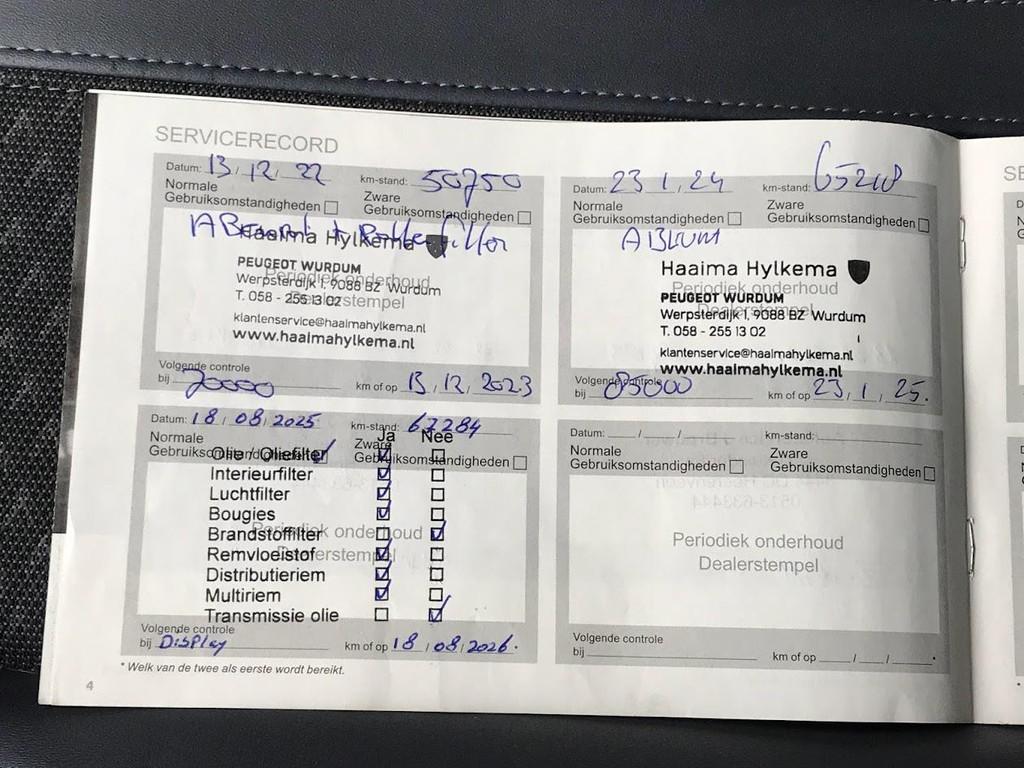 SERVICERECORD
Datum: 13 / 12 / 22 km-stand: 50750
Normale Gebruiksomstandigheden
Zware Gebruiksomstandigheden
Haaima Hylkema
PEUGEOT WURDUM
Werpsterdijk 1, 9088 BZ Wurdum
T. 058 - 255 13 02
klantenservice@haaimahylkema.nl
www.haaimahylkema.nl
Periodiek onderhoud
Dealerstempel
Volgende controle
bij 70000 km of op 13, 12, 2023
Datum: 23 1, 24 km-stand:
Normale Gebruiksomstandigheden
Zware Gebruiksomstandigheden
Haaima Hylkema
PEUGEOT WURDUM
Werpsterdijk 1, 9088 BZ Wurdum
T. 058 - 255 13 02
klantenservice@haaimahylkema.nl
www.haaimahylkema.nl
Periodiek onderhoud
Dealerstempel
Volgende controle
bij 85000 km of op 23, 1, 25.
Datum: 18 / 08 / 2025 km-stand: 67284
Normale Gebruiksomstandigheden
Zware Gebruiksomstandigheden
Ja Nee
Olie / Oliefilter
Interieurfilter
Luchtfilter
Bougies
Brandstoffilter
Remvloeistof
Distributieriem
Multiriem
Transmissie olie
Periodiek onderhoud
Dealerstempel
Volgende controle
bij Display km of op 18 / 08 / 2026.
Datum: / / km-stand:
Normale Gebruiksomstandigheden
Zware Gebruiksomstandigheden
Periodiek onderhoud
Dealerstempel
Volgende controle
bij km of op / / *
* Welk van de twee als eerste wordt bereikt.
4